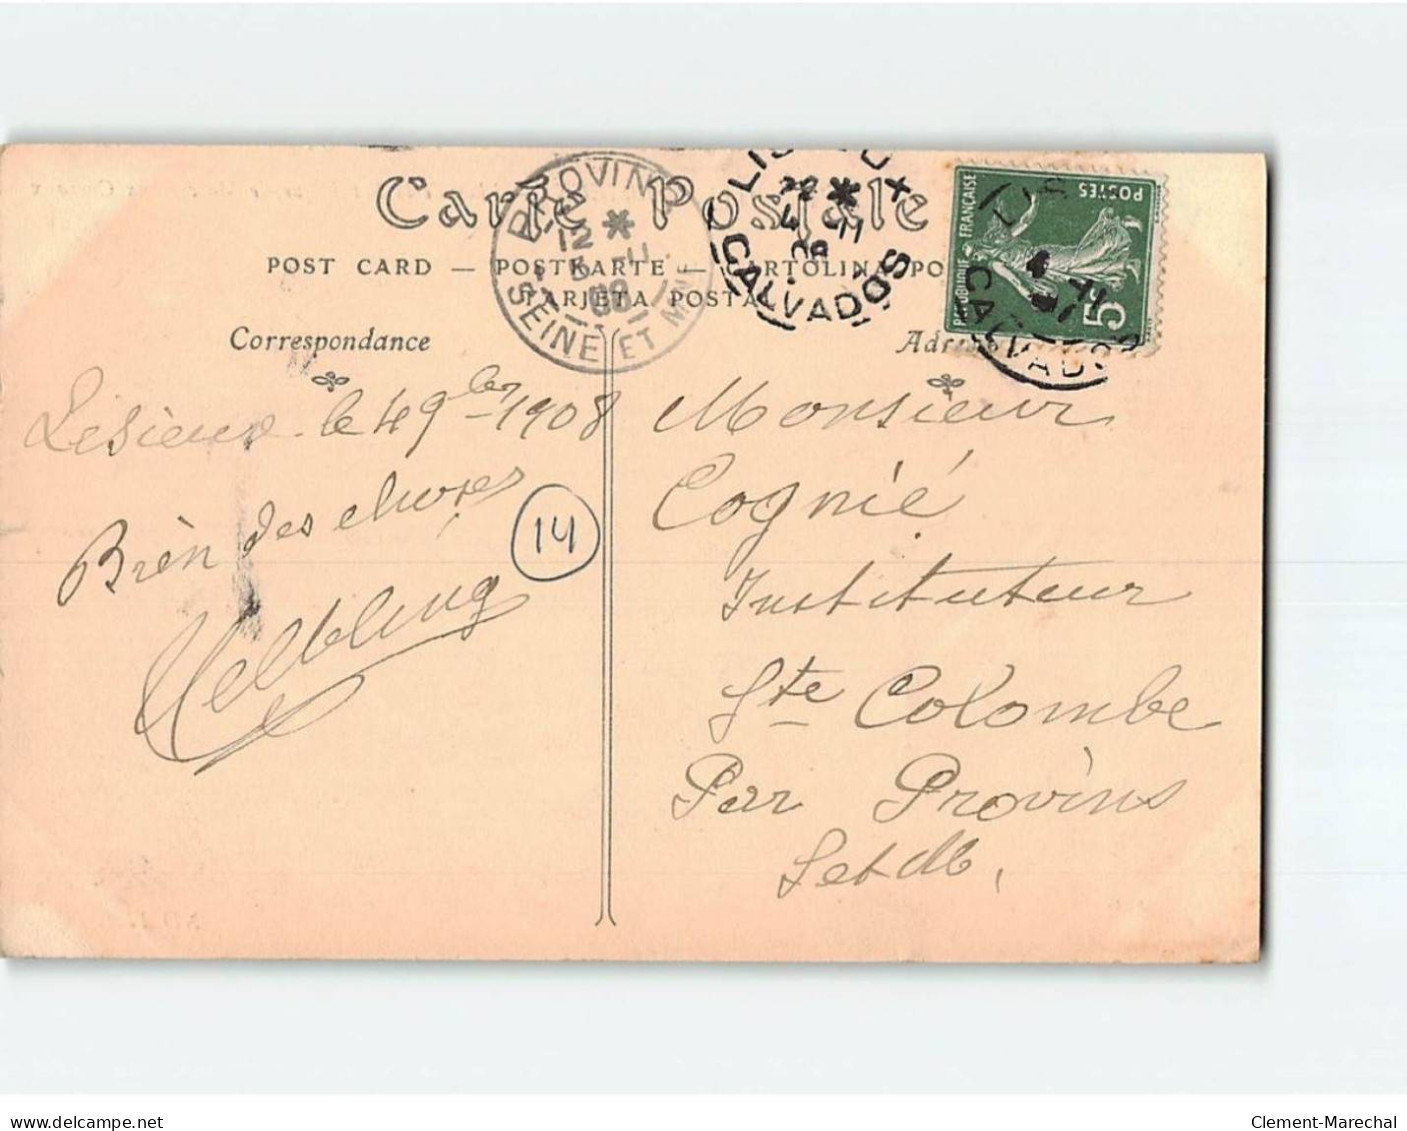 Carte Postale
POST CARD — POSTKARTE — CARTOLINA PO
TARJETA POSTAL
Correspondance
Adresse
PROVINS
12 *
5 - 11
08
SEINE ET MNE
LISIEUX
CALVADOS
RÉPUBLIQUE FRANÇAISE
POSTES
5
CALVADOS
Lisieux le 4 9bre 1908
Bien des choses
Helbling
14
Monsieur
Cognié
Instituteur
Ste Colombe
Par Provins
S et M,
delcampe.net
Clement-Marechal